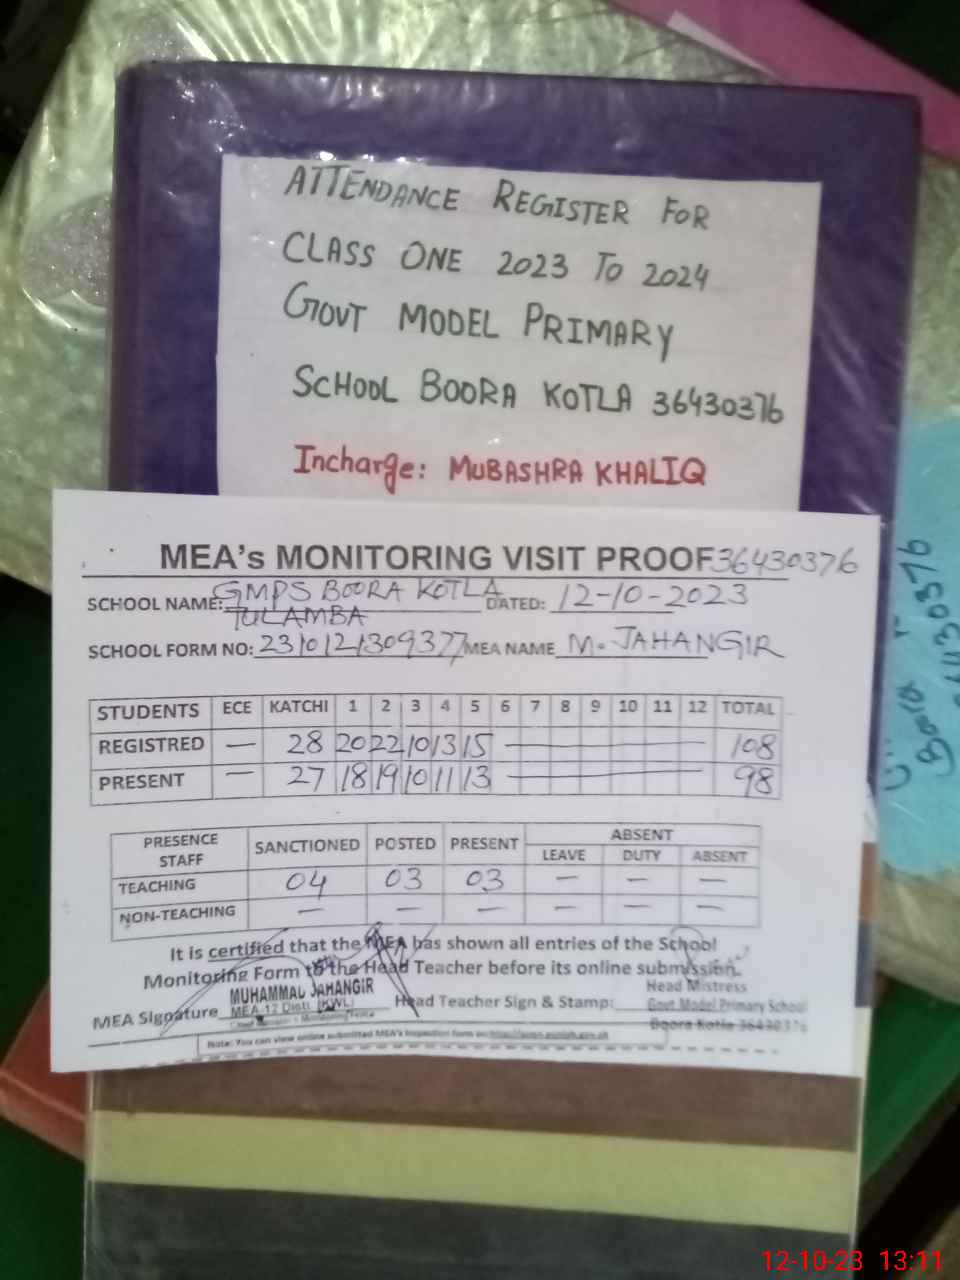 ATTENDANCE REGISTER FOR
CLASS ONE 2023 TO 2024
GOVT MODEL PRIMARY
SCHOOL BOORA KOTLA 36430376
Incharge: MUBASHRA KHALIQ
MEA's MONITORING VISIT PROOF 36430376
SCHOOL NAME: GMPS BOORA KOTLA DATED: 12-10-2023
TULAMBA
SCHOOL FORM NO: 2310121309377 MEA NAME M. JAHANGIR
STUDENTS ECE KATCHI 1 2 3 4 5 6 7 8 9 10 11 12 TOTAL
REGISTRED — 28 20 22 10 13 15 — 108
PRESENT — 27 18 19 10 11 13 — 98
PRESENCE STAFF SANCTIONED POSTED PRESENT ABSENT
LEAVE DUTY ABSENT
TEACHING 04 03 03 — — —
NON-TEACHING — — — — — —
It is certified that the MEA has shown all entries of the School
Monitoring Form to the Head Teacher before its online submission.
Head Mistress
MUHAMMAD JAHANGIR
MEA Signature MEA 12 Distt. (KWL) Head Teacher Sign & Stamp: Govt Model Primary School
Boora Kotla 36430376
Note: You can view online submitted MEA's Inspection form on
Boora
36430376
12-10-23 13:11